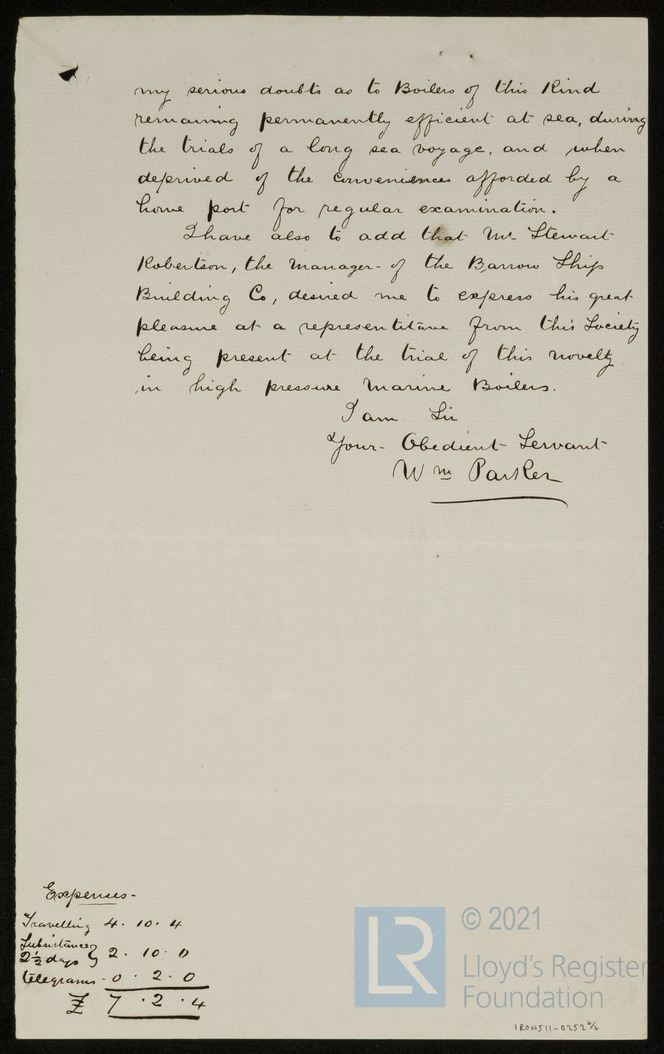 my serious doubts as to Boilers of this Kind
remaining permanently efficient at sea, during
the trials of a long sea voyage, and when
deprived of the conveniences afforded by a
home port for regular examination.
I have also to add that Mr Stewart
Robertson, the Manager of the Barrow Ship
Building Co, desired me to express his great
pleasure at a representitive from this Society
being present at the trial of this novelty
in high pressure Marine Boilers.
I am Sir
Your Obedient Servant
Wm Parker
Expenses-
Travelling 4. 10. 4
Subsistance
2½ days } 2. 10. 0
telegrams - 0. 2. 0
£ 7. 2. 4
© 2021
LR
Lloyd's Register
Foundation
IRON511-0252 6/6